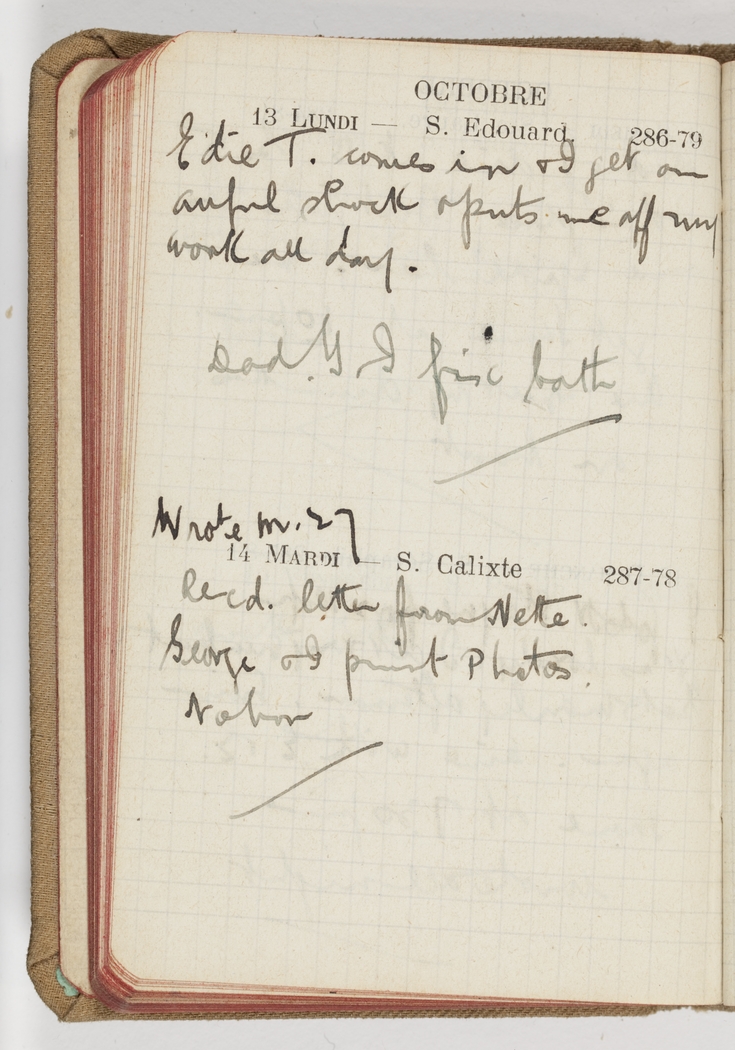 OCTOBRE
13 LUNDI — S. Edouard. 286-79
Edie T. comes in & I get an
awful shock & puts me off my
work all day.
Dad. G & I bath
Wrote M. 27
14 MARDI — S. Calixte 287-78
Recd. letter from Nette.
George & I print Photos.